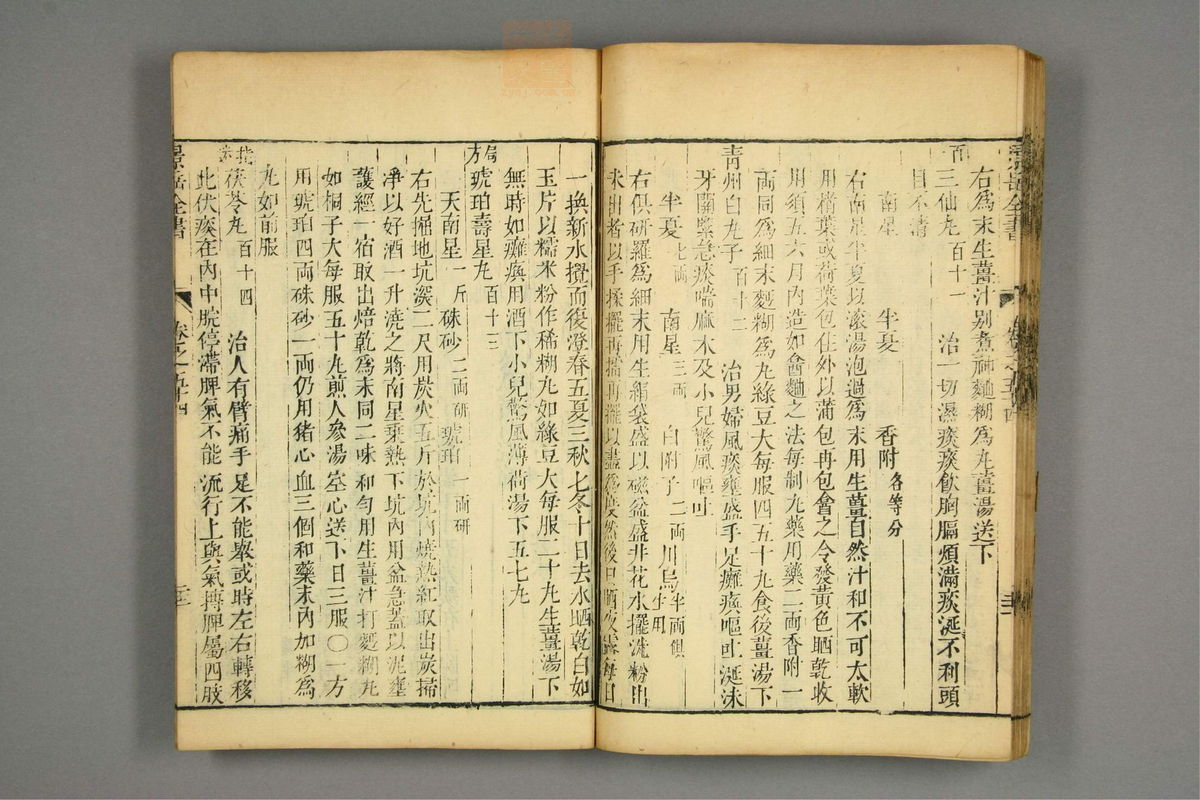 景岳全書
卷之五十四
右爲末生薑汁别煮神麯糊爲丸薑湯送下
百三仙丸 百十一 治一切濕痰痰飲胸膈煩滿痰涎不利頭
目不清
南星 半夏 香附 各等分
右南星半夏以滚湯泡過爲末用生薑自然汁和不可太軟
用楮葉或荷葉包住外以蒲包再包罯之令發黃色晒乾收
用須五六月內造如罯麯之法每制丸藥用藥二両香附一
両同爲細末麪糊爲丸綠豆大每服四五十丸食後薑湯下
青州白丸子 百十二 治男婦風痰壅盛手足癱瘓嘔吐涎沫
牙關緊急痰喘麻木及小兒驚風嘔吐
半夏 七両 南星 三両 白附子 二両 川烏 半両俱生用
右俱研羅爲細末用生絹袋盛以磁盆盛井花水擺洗粉出
未出者以手揉擺再擂再擺以盡爲度然後日晒夜露每日
一換新水攪而復澄春五夏三秋七冬十日去水晒乾白如
玉片以糯米粉作稀糊丸如綠豆大每服二十丸生薑湯下
無時如癱瘓用酒下小兒驚風薄荷湯下五七丸
局方琥珀壽星丸 百十三
天南星 一斤 硃砂 二両研 琥珀 一両研
右先掘地坑深二尺用炭火五斤於坑內燒熱紅取出炭掃
净以好酒一升澆之將南星乘熱下坑內用盆急蓋以泥壅
護經一宿取出焙乾爲末同二味和勻用生薑汁打麪糊丸
如桐子大每服五十丸煎人參湯空心送下日三服〇一方
用琥珀四両硃砂一両仍用猪心血三個和藥末內加糊爲
丸如前服
指迷茯苓丸 百十四 治人有臂痛手足不能舉或時左右轉移
此伏痰在內中脘停滯脾氣不能流行上與氣搏脾屬四肢
景岳全書
卷之五十四